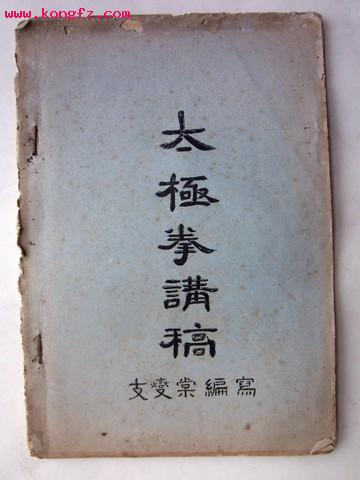 www.kongfz.com
太極拳講稿
支燮棠編寫